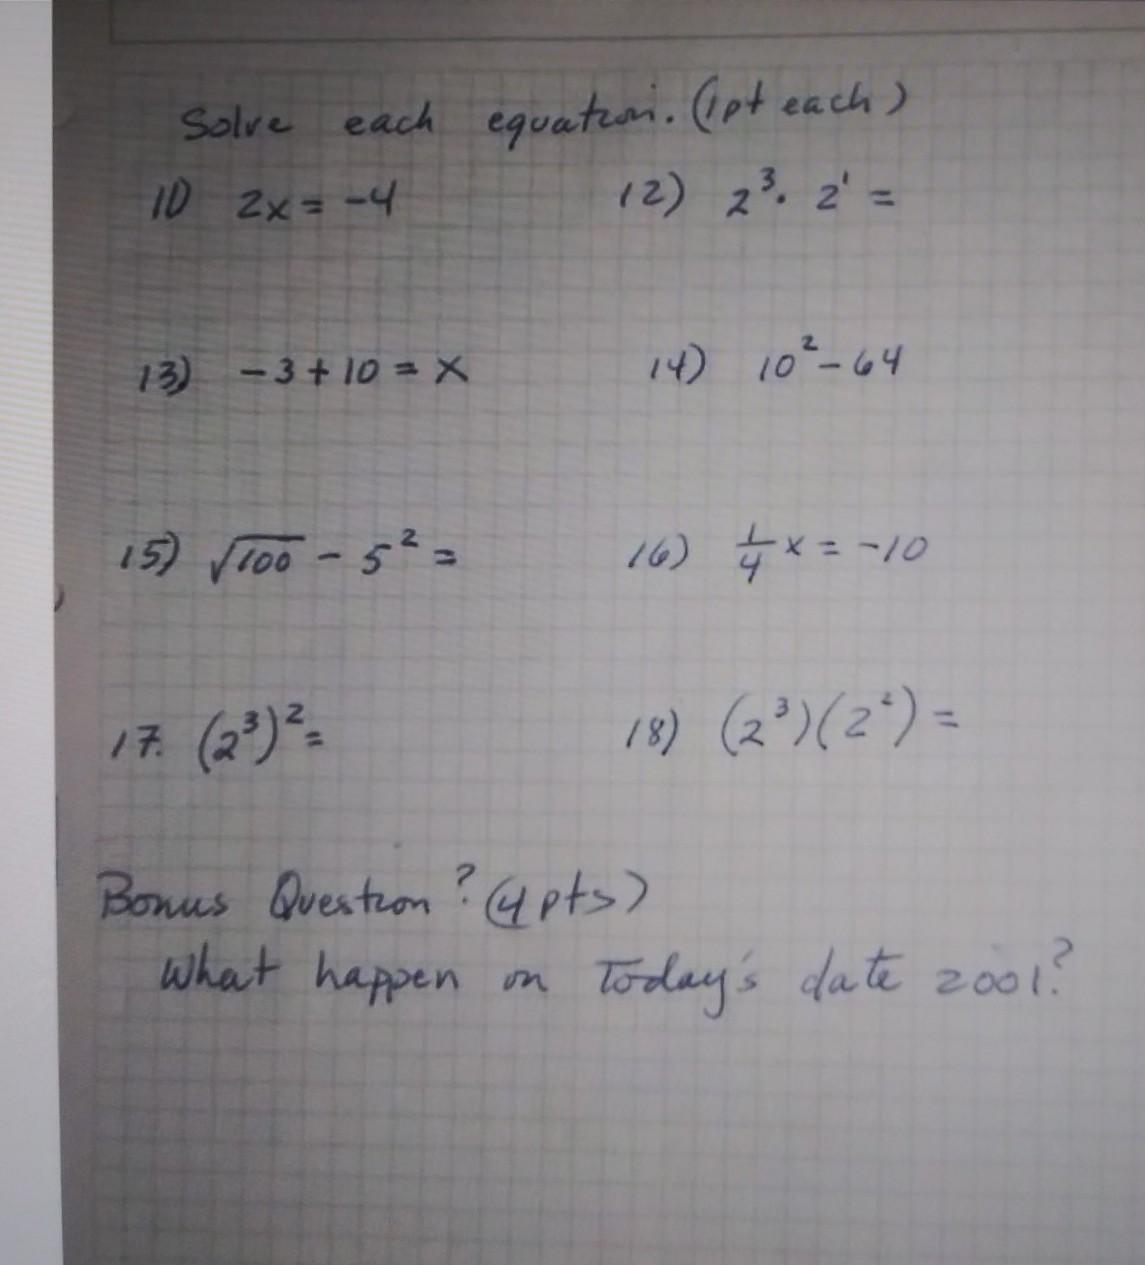 Solve each equation. (1pt each)
11) 2x = -4 12) 2³· 2¹ =
13) -3 + 10 = x 14) 10² - 64
15) √100 - 5² = 16) 1/4 x = -10
17. (2³)² = 18) (2³)(2²) =
Bonus Question? (4pts)
What happen on Today's date 2001?